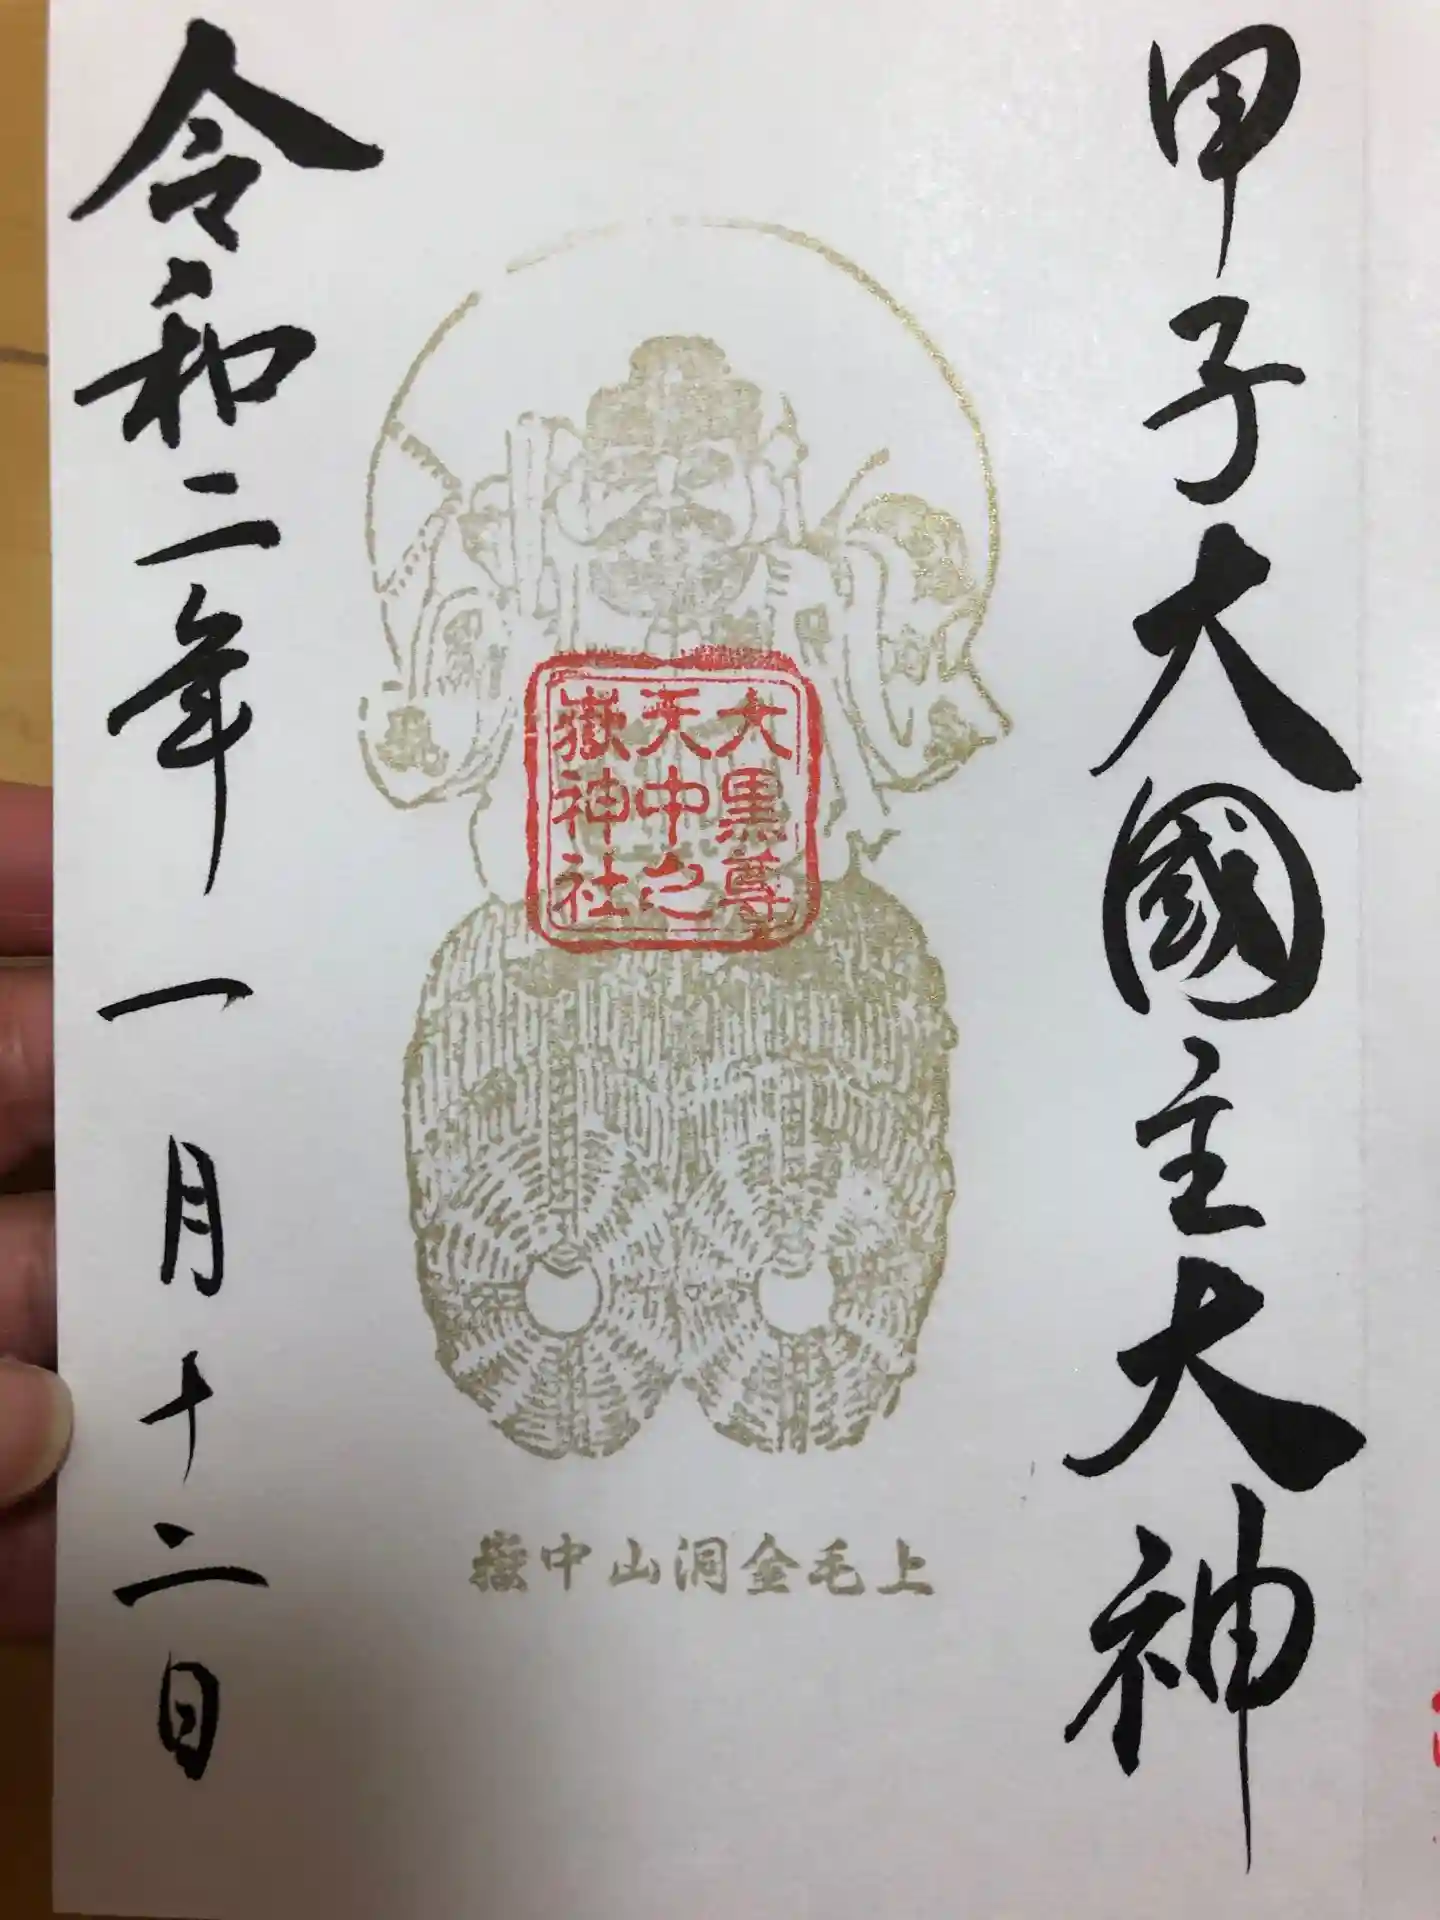 甲子大國主大神
大黒尊
天中之
嶽神社
上毛金洞山中嶽
令和二年一月十二日